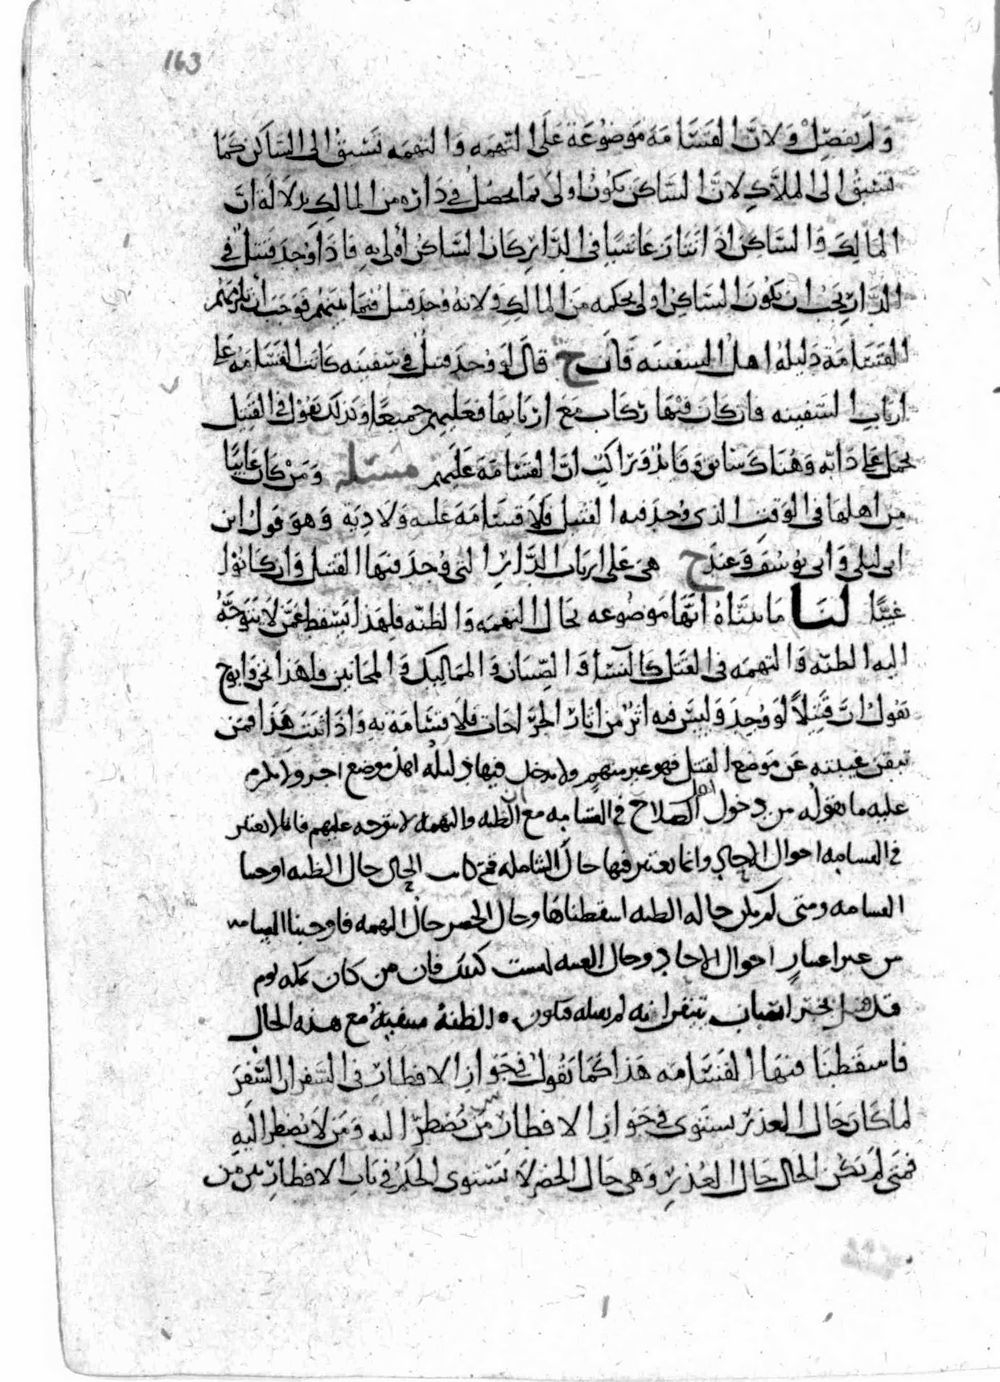 163
ولم يفصل ولان القسامة موضوعة على التهمه والتهمه تسبق الى الساكن كما
تسبق الى الملاك لان الساكن يكون اولى بما يحصل في داره من المالك بدلالة ان
المالك والساكن اذا تنازعا شيئا في الدار كان الساكن اولى به فاذا وجد قتيل في
الدار يجب ان يكون الساكن اولى بحكمه من المالك ولانه وجد قتيل فيما بينهم فوجب ان يلزمهم
القسامة دليله اهل السفينه فان ح قال لو وجد قتيل في سفينه كانت القسامه على
ارباب السفينه فان كان فيها ركاب مع اربابها فعليهم جميعا وكذلك نقول في القتيل
يحمل على دابه وهناك سائق وقائد وراكب ان القسامة عليهم مسئلة ومن كان غائبا
من اهلها في الوقت الذي وجد فيه القتيل فلا قسامة عليه ولا دية وهو قول ابن
ابي ليلى وابي يوسف وعند ح هي على ارباب الدار التي وجد فيها القتيل وان كانوا
غيبا لنا ما بيناه انها موضوعه بحال التهمه والظنه فلهذا تسقط عمن لا يتوجه
اليه الظنه والتهمه في القتل كالنسأ والصبيان والمماليك والمجانين ولهذا نحن وابو ح
نقول ان قتيلا لو وجد وليس فيه اثر من اثار الجراحات فلا قسامة به واذا ثبت هذا فمن
تيقن غيبته عن موضع القتل فهو غير متهم ولا يدخل فيها دليله اهل موضع اخر ولا يلزم
عليه ما نقوله من دخول اهل الصلاح في القسامه مع ان الظنه والتهمة لا تتوجه عليهم فانا لا نعتبر
في القسامه احوال الاحاد وانما يعتبر فيها حال الشامله فمتى كانت الحال حال الظنه اوجبنا
القسامه ومتى لم يكن حاله الظنه اسقطناها وحال الحضر حال التهمه فاوجبنا القسامه
من غير اعتبار احوال الاحاد وحال الغيبه ليست كذلك فان من كان بمكه يوم
قتل
الظنة منتفية مع هذه الحال
فاسقطنا فيها القسامه هذا كما نقول في جواز الافطار في السفر ان السفر
لما كان حال العذر يستوي في جواز الافطار من يضطر اليه ومن لا يضطر اليه
فمتى لم تكن الحال حال العذر وهي حال الحضر لا يستوي الحكم في باب الافطار بين من